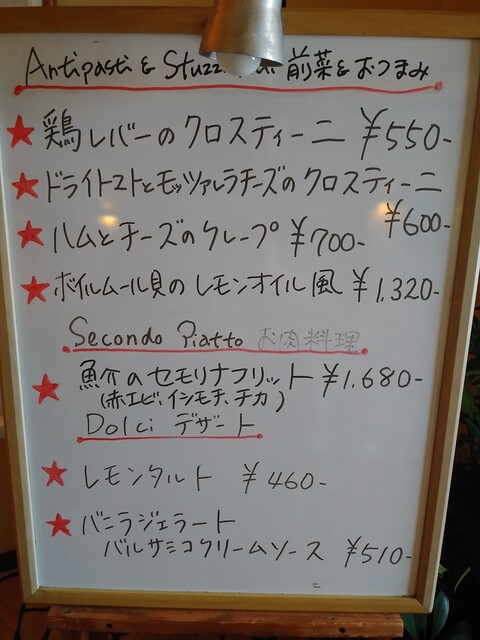 Antipasti & 前菜&おつまみ
鶏レバーのクロスティーニ ¥550-
ドライトマトとモッツァレラチーズのクロスティーニ
¥600-
ハムとチーズのクレープ ¥700-
ボイルムール貝のレモンオイル風 ¥1.320-
Secondo Piatto お肉料理
魚介のセモリナフリット ¥1.680-
(赤エビ、イシモチ、チカ)
Dolci デザート
レモンタルト ¥460-
バニラジェラート
バルサミコクリームソース ¥510-